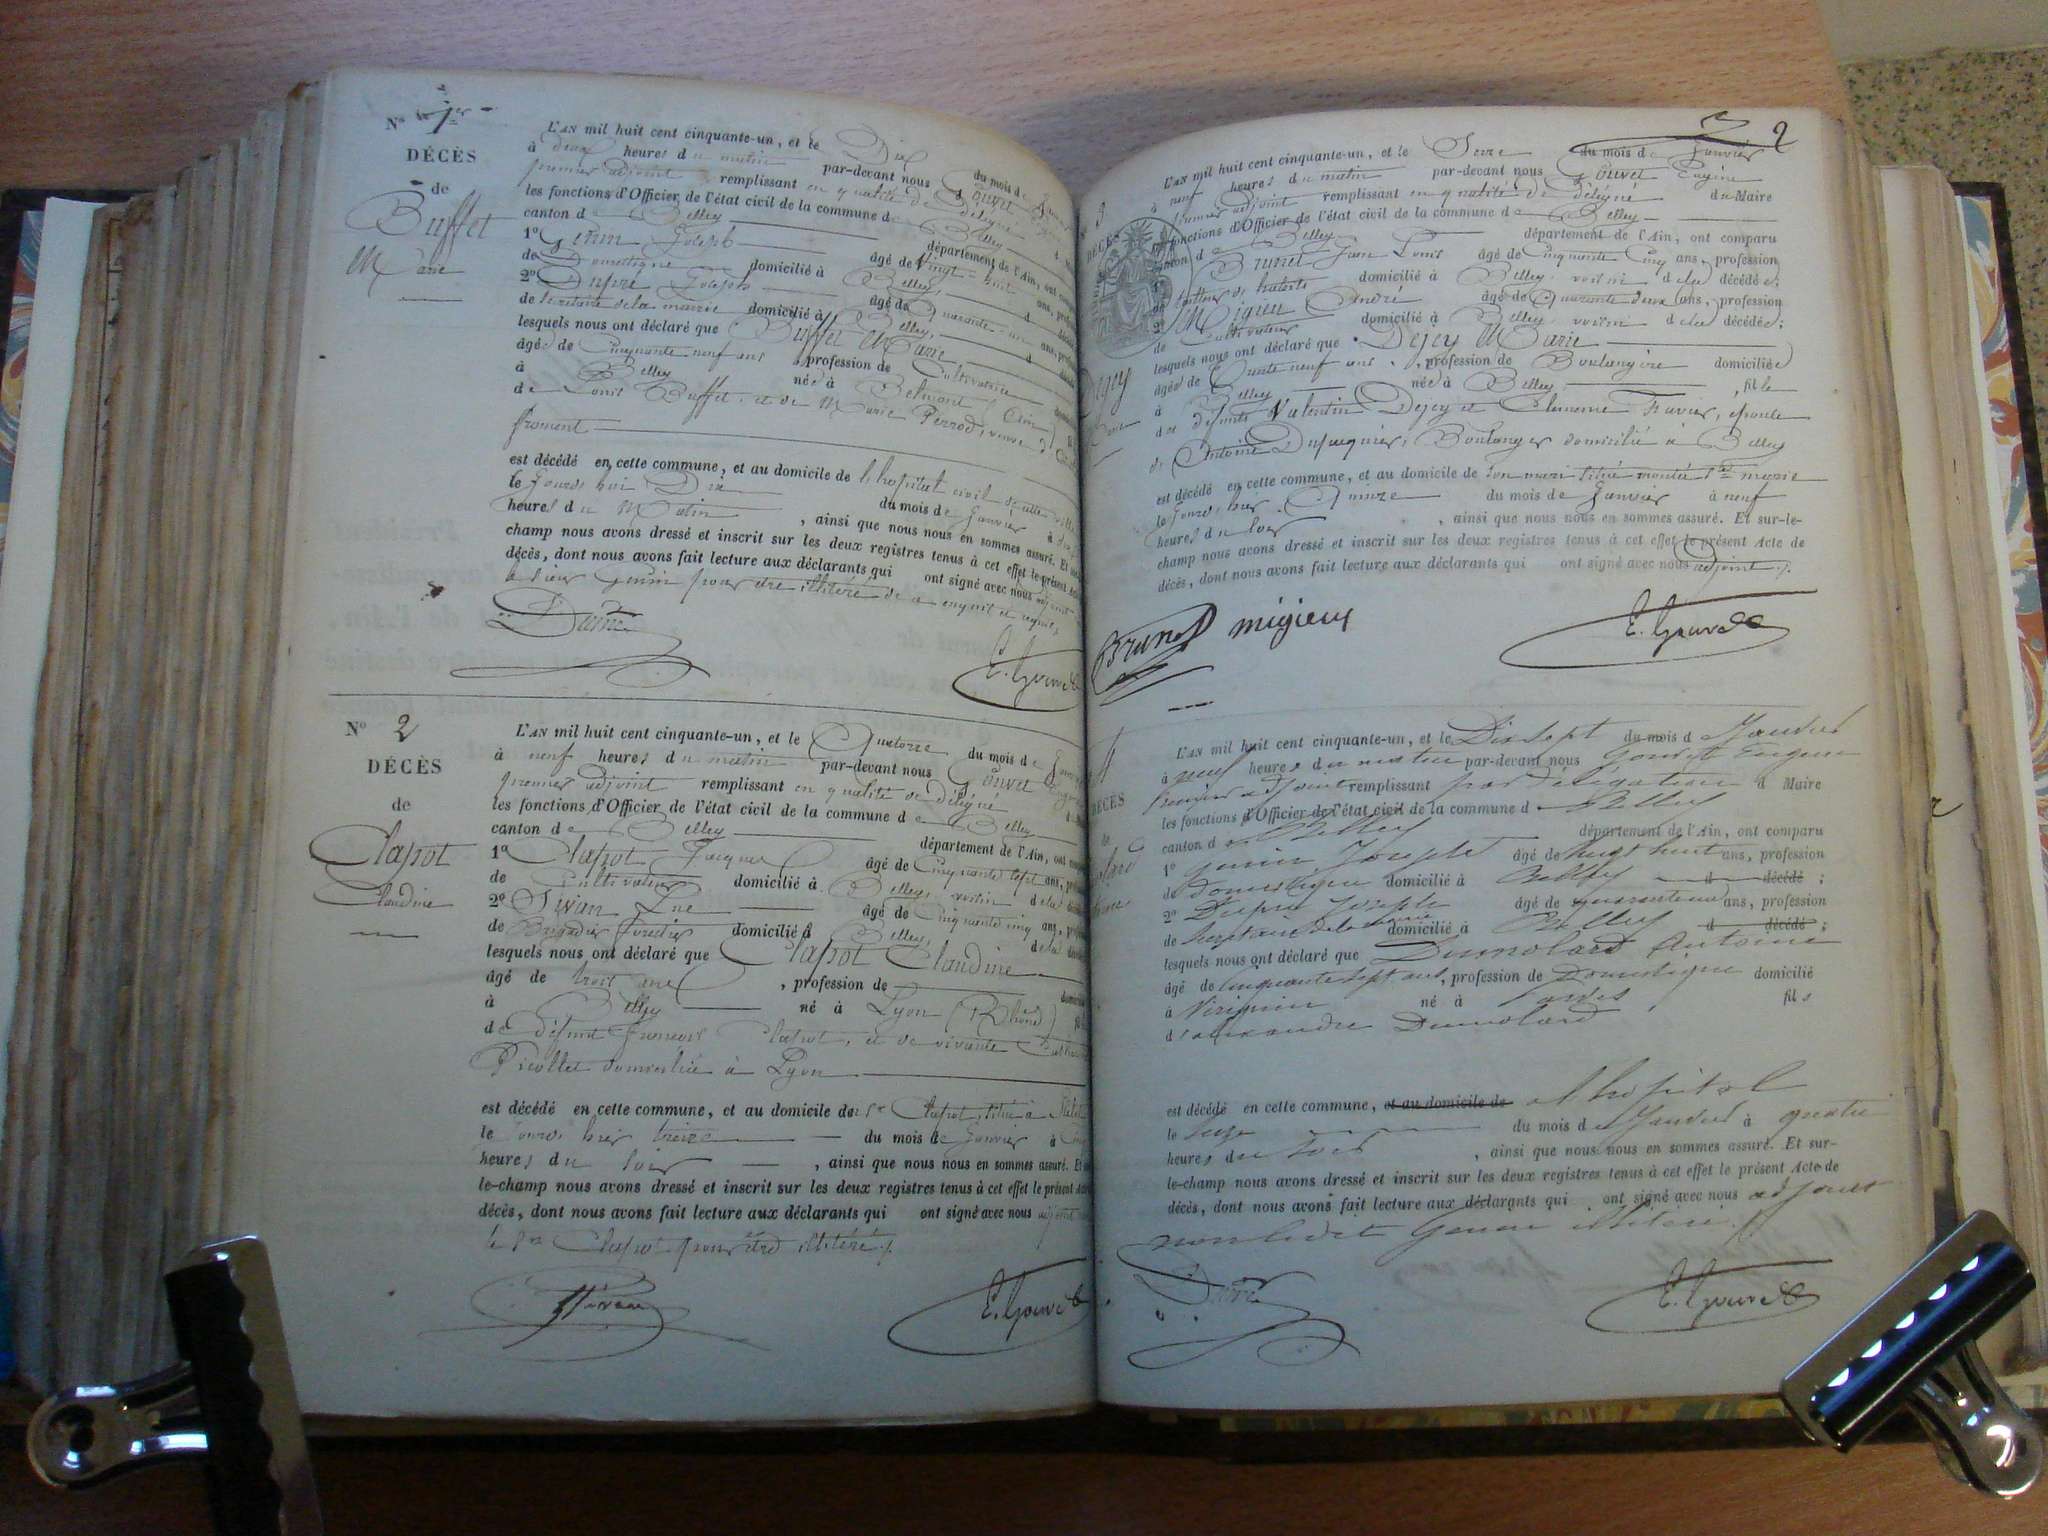 N° 1er
DÉCÈS
de
Buffet
Marie
L'AN mil huit cent cinquante-un, et le Dix du mois de
à deux heures du matin par-devant nous Gouvet
premier adjoint remplissant en qualité de délégué
les fonctions d'Officier de l'état civil de la commune de Belley
canton de Belley département de l'Ain, ont
1° Genin Joseph âgé de vingt-huit ans,
de Domestique domicilié à Belley
2° Dupré Joseph âgé de Quarante-un ans,
de Secrétaire de la mairie domicilié à Belley,
lesquels nous ont déclaré que Buffet Marie
âgée de Cinquante neuf ans, profession de Cultivatrice
à Belley née à Belmont (Ain)
de Louis Buffet, et de Marie Perrod, veuve d
froment
est décédé en cette commune, et au domicile de l'hopital civil de cette ville
le jourd'hui Dix du mois de Janvier à
heures du Matin, ainsi que nous nous en sommes assuré. Et
champ nous avons dressé et inscrit sur les deux registres tenus à cet effet le présent
décès, dont nous avons fait lecture aux déclarants qui ont signé avec nous adjoint
le sieur Genin pour être illitéré de ce enquit et requis,
Dupré
E. Gouvet
N° 2
DÉCÈS
de
Clapot
Claudine
L'AN mil huit cent cinquante-un, et le Quatorze du mois de
à neuf heures du matin par-devant nous Gouvet
premier adjoint remplissant en qualité de délégué
les fonctions d'Officier de l'état civil de la commune de Belley
canton de Belley département de l'Ain, ont
1° Clapot Jacques âgé de Cinquante sept ans,
de Cultivateur domicilié à Belley, voisin de la
2° Sivan âgé de Cinquante cinq ans,
de Brigadier Forestier domicilié à Belley, de la
lesquels nous ont déclaré que Clapot Claudine
âgé de trois ans, profession de
à Belley né à Lyon (Rhône)
de défunt François Clapot, et de vivante
Picollet domiciliée à Lyon
est décédé en cette commune, et au domicile du Sr Clapot, située à
le jourd'hier treize du mois de Janvier à Cinq
heures du soir, ainsi que nous nous en sommes assuré. Et
le-champ nous avons dressé et inscrit sur les deux registres tenus à cet effet le présent Acte
décès, dont nous avons fait lecture aux déclarants qui ont signé avec nous adjoint
le Sr Clapot pour être illitéré
E. Gouvet
2
3
DÉCÈS
Dejey
L'AN mil huit cent cinquante-un, et le Seize du mois de Janvier
à neuf heures du matin par-devant nous Gouvet Eugène
premier adjoint remplissant en qualité de délégué du Maire
les fonctions d'Officier de l'état civil de la commune de Belley
canton de Belley département de l'Ain, ont comparu
Brunet Jean Louis âgé de Cinquante Cinq ans, profession
domicilié à Belley voisin de la décédée;
2° Migieu André âgé de Quarante deux ans, profession
de Cultivateur domicilié à Belley voisin de la décédée;
lesquels nous ont déclaré que Dejey Marie
âgée de trente neuf ans, profession de Boulangère domiciliée
à Belley née à Belley, fille
des défunts Valentin Dejey et Clémence Travier, épouse
de Antoine Dupasquier, Boulanger domicilié à Belley
est décédé en cette commune, et au domicile de son mari située montée
le jourd'hier Quinze du mois de Janvier à neuf
heures du soir, ainsi que nous nous en sommes assuré. Et sur-le-
champ nous avons dressé et inscrit sur les deux registres tenus à cet effet le présent Acte de
décès, dont nous avons fait lecture aux déclarants qui ont signé avec nous adjoint
Brunet migieu
E. Gouvet
4
DÉCÈS
de
L'AN mil huit cent cinquante-un, et le Dix sept du mois de Janvier
à neuf heures du matin par-devant nous Gouvet Eugène
Premier adjoint remplissant par délégation d Maire
les fonctions d'Officier de l'état civil de la commune de Belley
canton de Belley département de l'Ain, ont comparu
1° Genin Joseph âgé de vingt huit ans, profession
de Domestique domicilié à Belley d décédé;
2° Dupré Joseph âgé de quarante un ans, profession
de Secrétaire de la mairie domicilié à Belley d décédé;
lesquels nous ont déclaré que Dumolard Antoine
âgé de cinquante sept ans, profession de Domestique domicilié
à Virignin né à fils
d'alexandre Dumolard
est décédé en cette commune, et au domicile de à l'hopital
le seize du mois de Janvier à quatre
heures du soir, ainsi que nous nous en sommes assuré. Et sur-
le-champ nous avons dressé et inscrit sur les deux registres tenus à cet effet le présent Acte de
décès, dont nous avons fait lecture aux déclarants qui ont signé avec nous adjoint
non ledit Genin illitéré
Dupré
E. Gouvet